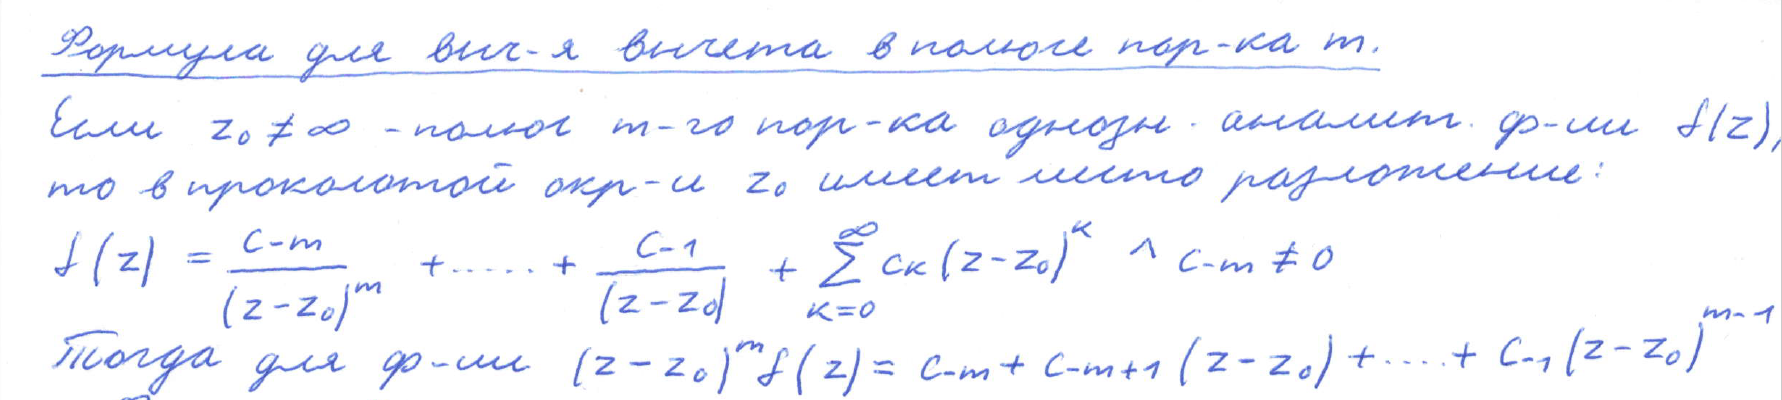 Формула для выч-я вычета в полюсе пор-ка m.
Если z₀ ≠ ∞ - полюс m-го пор-ка однозн. аналит. ф-ии f(z),
то в проколотой окр-и z₀ имеет место разложение:
f(z) = c₋ₘ/(z-z₀)^m +.....+ c₋₁/(z-z₀) + ∑_{k=0}^{∞} cₖ(z-z₀)^k ∧ c₋ₘ ≠ 0
Тогда для ф-ии (z-z₀)^m f(z) = c₋ₘ + c₋ₘ₊₁(z-z₀) +....+ c₋₁(z-z₀)^{m-1}